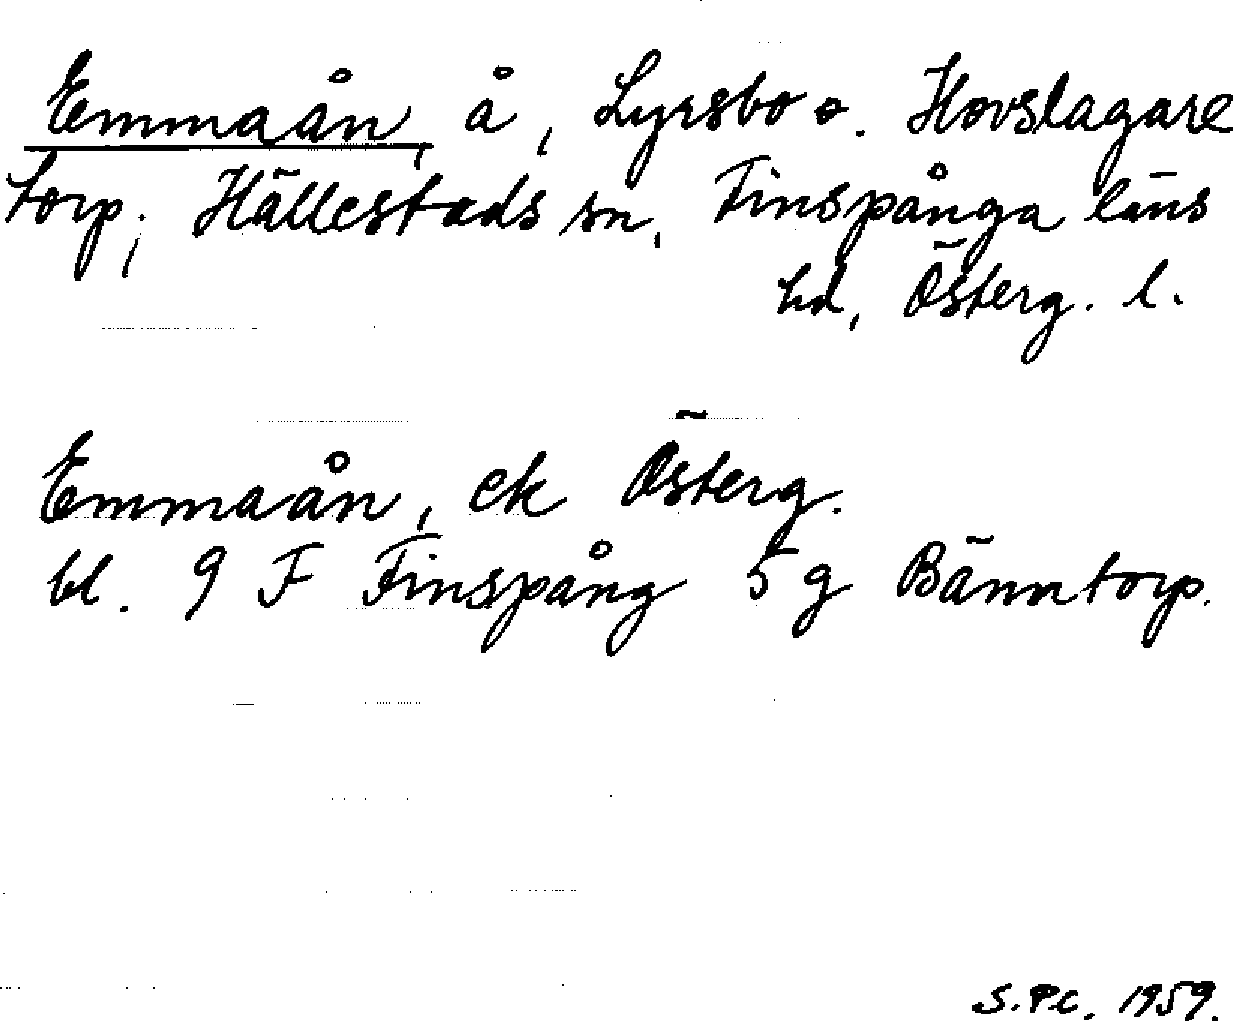 Emmaån, å, Lyrsbo o. Hovslagare
torp, Hällestads sn, Finspånga läns
hd, Österg. l.
Emmaån, ek Österg.
bl. 9 F Finspång 5 g Bänntorp.
S.P.C. 1959.